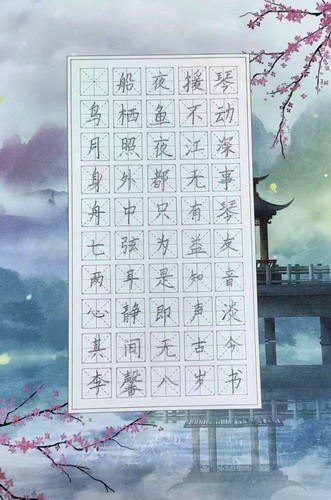 船夜援琴
鸟栖鱼不动
月照夜江深
身外都无事
舟中只有琴
七弦为益友
两耳是知音
心静即声淡
其间无古今
李馨八岁书